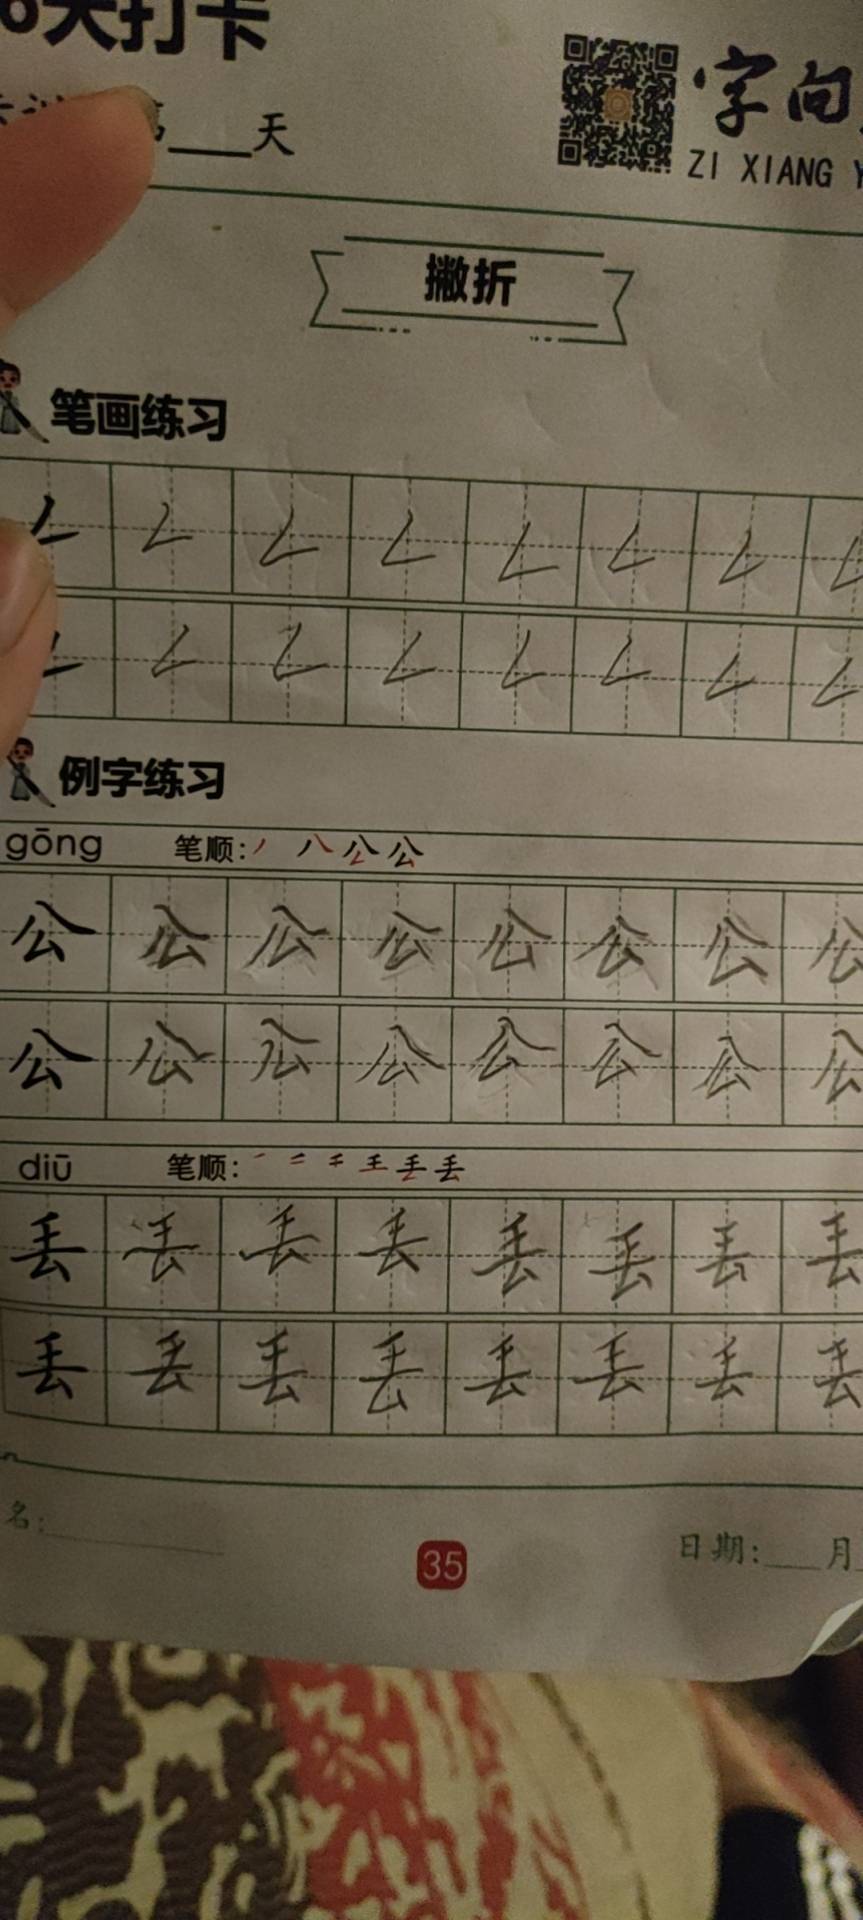 6天打卡
第___天
字向
ZI XIANG Y
撇折
笔画练习
例字练习
gōng 笔顺: 丿 八 公 公
公 公 公 公 公 公 公 公
公 公 公 公 公 公 公 公
diū 笔顺:
丢 丢 丢 丢 丢 丢 丢 丢
丢 丢 丢 丢 丢 丢 丢 丢
名:
35
日期:___月